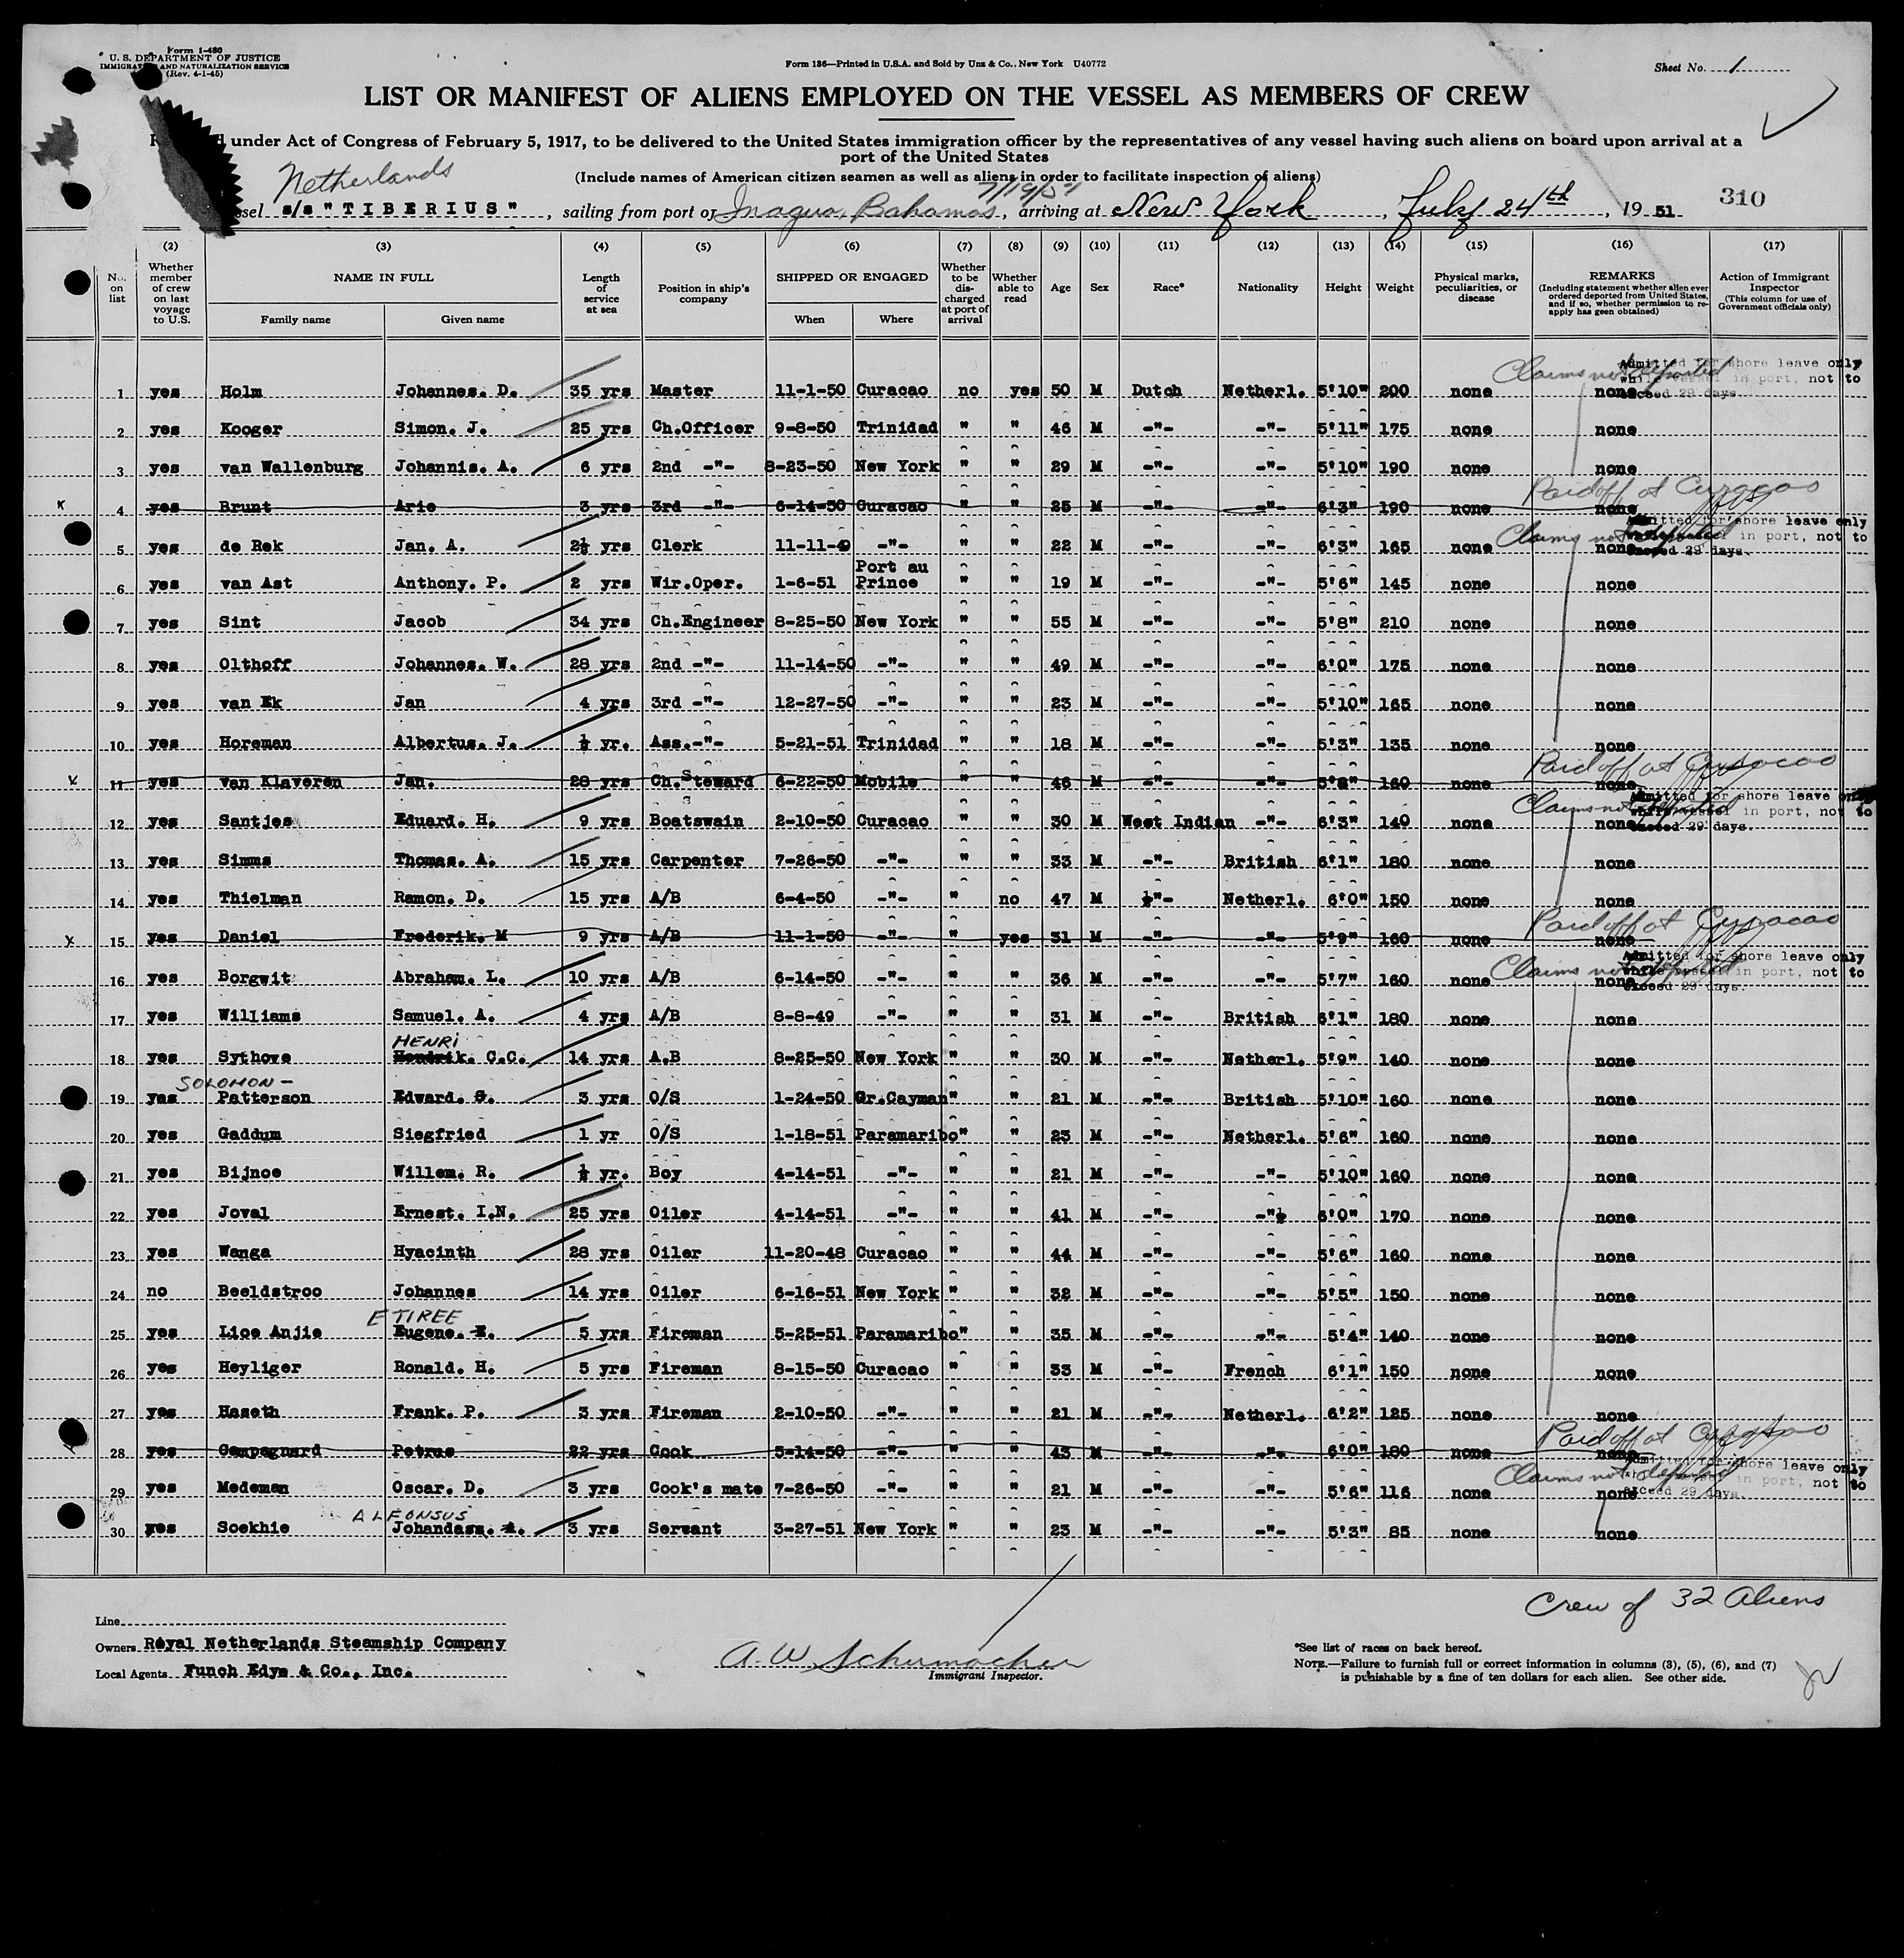 Form I-480
U. S. DEPARTMENT OF JUSTICE
IMMIGRATION AND NATURALIZATION SERVICE
(Rev. 4-1-45)
Form 186—Printed in U.S.A. and Sold by Unz & Co., New York U40772
Sheet No. 1
LIST OR MANIFEST OF ALIENS EMPLOYED ON THE VESSEL AS MEMBERS OF CREW
under Act of Congress of February 5, 1917, to be delivered to the United States immigration officer by the representatives of any vessel having such aliens on board upon arrival at a
port of the United States
(Include names of American citizen seamen as well as aliens in order to facilitate inspection of aliens)
Netherlands
7/19/51
ssel s/s "TIBERIUS", sailing from port of Inagua, Bahamas, arriving at New York, July 24th, 19 51 310
(2) (3) (4) (5) (6) (7) (8) (9) (10) (11) (12) (13) (14) (15) (16) (17)
No. on list Whether member of crew on last voyage to U.S. NAME IN FULL Family name Given name Length of service at sea Position in ship's company SHIPPED OR ENGAGED When Where Whether to be discharged at port of arrival Whether able to read Age Sex Race* Nationality Height Weight Physical marks, peculiarities, or disease REMARKS (Including statement whether alien ever ordered deported from United States, and if so, whether permission to reapply has geen obtained) Action of Immigrant Inspector (This column for use of Government officials only)
Claims not deported Admitted for shore leave only while vessel in port, not to exceed 29 days.
1 yes Holm Johannes. D. 35 yrs Master 11-1-50 Curacao no yes 50 M Dutch Netherl. 5'10" 200 none none
2 yes Kooger Simon. J. 25 yrs Ch.Officer 9-8-50 Trinidad " " 46 M -"- -"- 5'11" 175 none none
3 yes van Wallenburg Johannis. A. 6 yrs 2nd -"- 8-23-50 New York " " 29 M -"- -"- 5'10" 190 none none
Paid off at Curacao
4 yes Brunt Arie 3 yrs 3rd -"- 6-14-50 Curacao " " 25 M -"- -"- 6'3" 190 none none
Claims not deported Admitted for shore leave only while vessel in port, not to exceed 29 days.
5 yes de Rek Jan. A. 2½ yrs Clerk 11-11-49 -"- " " 22 M -"- -"- 6'3" 165 none none
6 yes van Ast Anthony. P. 2 yrs Wir.Oper. 1-6-51 Port au Prince " " 19 M -"- -"- 5'6" 145 none none
7 yes Sint Jacob 34 yrs Ch.Engineer 8-25-50 New York " " 55 M -"- -"- 5'8" 210 none none
8 yes Olthoff Johannes. W. 28 yrs 2nd -"- 11-14-50 -"- " " 49 M -"- -"- 6'0" 175 none none
9 yes van Ek Jan 4 yrs 3rd -"- 12-27-50 -"- " " 23 M -"- -"- 5'10" 165 none none
10 yes Horeman Albertus. J. ½ yr. Ass.-"- 5-21-51 Trinidad " " 18 M -"- -"- 5'3" 135 none none
Paid off at Curacao
11 yes van Klaveren Jan. 28 yrs Ch.Steward 6-22-50 Mobile " " 46 M -"- -"- 5'8" 160 none none
Claims not deported Admitted for shore leave only while vessel in port, not to exceed 29 days.
12 yes Santjes Eduard. H. 9 yrs Boatswain 2-10-50 Curacao " " 30 M West Indian -"- 6'3" 140 none none
13 yes Simms Thomas. A. 15 yrs Carpenter 7-26-50 -"- " " 33 M -"- British 6'1" 180 none none
14 yes Thielman Ramon. D. 15 yrs A/B 6-4-50 -"- " no 47 M -"- Netherl. 6'0" 150 none none
Paid off at Curacao
15 yes Daniel Frederik. M 9 yrs A/B 11-1-50 -"- " yes 31 M -"- -"- 5'9" 160 none none
Claims not deported Admitted for shore leave only while vessel in port, not to exceed 29 days.
16 yes Borgwit Abraham. L. 10 yrs A/B 6-14-50 -"- " " 36 M -"- -"- 5'7" 160 none none
17 yes Williams Samuel. A. 4 yrs A/B 8-8-49 -"- " " 31 M -"- British 6'1" 180 none none
HENRI
18 yes Sythove Hendrik. C.C. 14 yrs A.B 8-25-50 New York " " 30 M -"- Netherl. 5'9" 140 none none
SOLOMON-
19 yes Patterson Edward. S. 3 yrs O/S 1-24-50 Gr.Cayman " " 21 M -"- British 5'10" 160 none none
20 yes Gaddum Siegfried 1 yr O/S 1-18-51 Paramaribo " " 23 M -"- Netherl. 5'6" 160 none none
21 yes Bijnoe Willem. R. ½ yr. Boy 4-14-51 -"- " " 21 M -"- -"- 5'10" 160 none none
22 yes Joval Ernest. I.N. 25 yrs Oiler 4-14-51 -"- " " 41 M -"- -"- 6'0" 170 none none
23 yes Wanga Hyacinth 28 yrs Oiler 11-20-48 Curacao " " 44 M -"- -"- 5'6" 160 none none
24 no Beeldstroo Johannes 14 yrs Oiler 6-16-51 New York " " 32 M -"- -"- 5'5" 150 none none
ETIREE
25 yes Lioe Anjie Eugene. E. 5 yrs Fireman 5-25-51 Paramaribo " " 35 M -"- -"- 5'4" 140 none none
26 yes Heyliger Ronald. H. 5 yrs Fireman 8-15-50 Curacao " " 33 M -"- French 6'1" 150 none none
27 yes Haseth Frank. P. 3 yrs Fireman 2-10-50 -"- " " 21 M -"- Netherl. 6'2" 125 none none
Paid off at Curacao
28 yes Campagnard Petrus 22 yrs Cook 5-14-50 -"- " " 43 M -"- -"- 6'0" 180 none none
Claims not deported Admitted for shore leave only while vessel in port, not to exceed 29 days.
29 yes Medeman Oscar. D. 3 yrs Cook's mate 7-26-50 -"- " " 21 M -"- -"- 5'6" 116 none none
ALFONSUS
30 yes Soekhie Johandasm. A. 3 yrs Servant 3-27-51 New York " " 23 M -"- -"- 5'3" 85 none none
Crew of 32 Aliens
Line
Owners Royal Netherlands Steamship Company
Local Agents Funch Edye & Co., Inc.
A. W. Schumacher
Immigrant Inspector.
*See list of races on back hereof.
NOTE.—Failure to furnish full or correct information in columns (3), (5), (6), and (7)
is punishable by a fine of ten dollars for each alien. See other side.